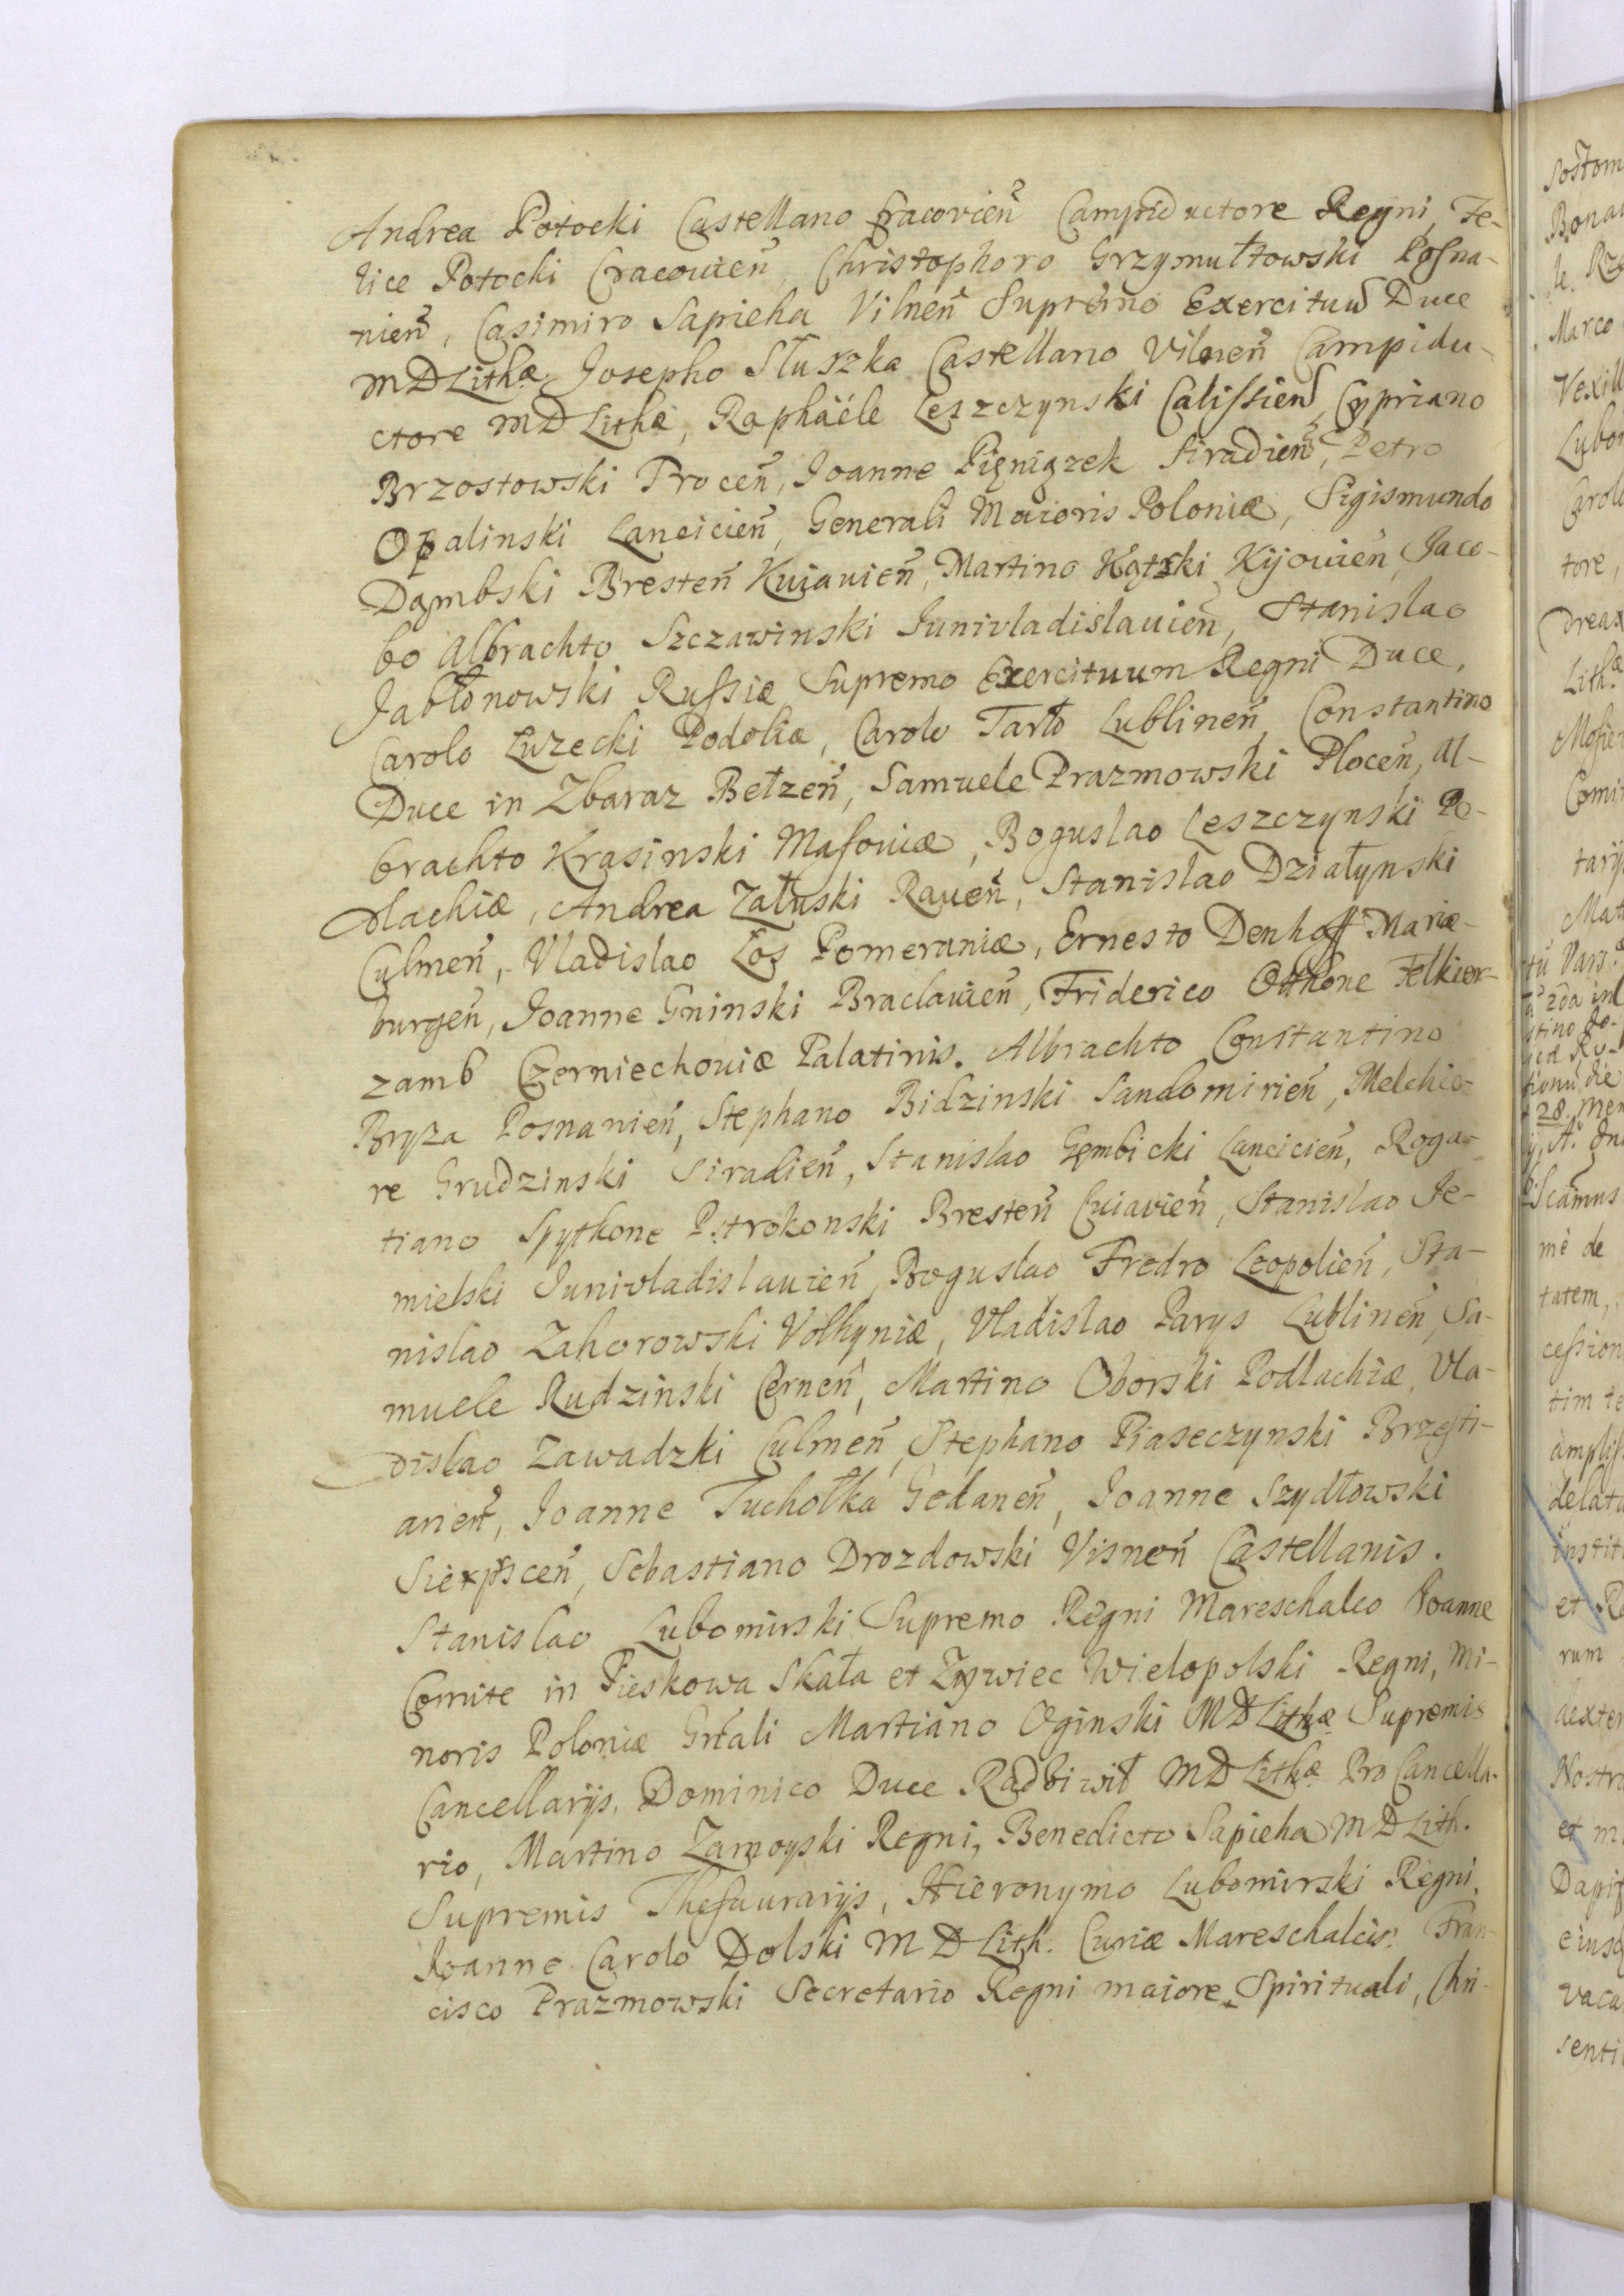 Andrea Potocki Castellano Cracovień Campiductore Regni, Fe-
lice Potocki Cracovień, Christophoro Grzymułtowski Posna-
nień, Casimiro Sapieha Vilneń Supremo Exercituū Duce
MDLithæ Josepho Słuszka Castellano Vilneń Campidu-
ctore MD Lithæ, Raphaéle Leszczynski Calissień, Cypriano
Brzostowski Troceń, Joanne Pięniążek Siradień, Petro
Opalinski Lancicień, Generali Maioris Poloniæ, Sigismundo
Dąmbski Bresteń Kuiauień, Martino Kątski Kijouień, Jaco-
bo Albrachto Szczawinski Junivladislauień, Stanislao
Jabłonowski Russiæ Supremo Exercituum Regni Duce,
Carolo Luzecki Podoliæ, Carolo Tarło Lublineń, Constantino
Duce in Zbaraz Bełzeń, Samuele Prazmowski Ploceń, Al-
brachto Krasinski Masouiæ, Boguslao Leszczynski Po-
dlachiæ, Andrea Załuski Raueń, Stanislao Działynski
Culmeń, Vladislao Łos Pomeraniæ, Ernesto Denhoff Mariæ-
burgeń, Joanne Gninski Braclauień, Friderico Otthone Felkier-
zamb Czerniechouiæ Palatinis. Albrachto Constantino
Bryza Posnanień, Stephano Bidzinski Sandomirień, Melchio-
re Grudzinski Siradień, Stanislao Gęmbicki Lancicień, Roga-
tiano Spytkone Pstrokonski Bresteń Cuiavień, Stanislao Je-
mielski Junivladislauień, Boguslao Fredro Leopolień, Sta-
nislao Zahorowski Volhyniæ, Vladislao Parys Lublineń, Sa-
muele Rudzinski Cerneń, Martino Oborski Podlachiæ, Vla-
dislao Zawadzki Culmeń, Stephano Piaseczynski Brzesti-
anień, Joanne Tuchołka Gedaneń, Joanne Szydłowski
Sierpsceń, Sebastiano Drozdowski Visneń Castellanis.
Stanislao Lubomirski Supremo Regni Mareschalco Joanne
Comite in Pieskowa Skała et Zywiec Wielopolski Regni, Mi-
noris Poloniæ Gnŕali Martiano Oginski MD Lithæ Supremis
Cancellarijs. Dominico Duce Radziwił MD Lithæ Pro Cancella-
rio, Martino Zamoyski Regni, Benedicto Sapieha MD Lith.
Supremis Thesaurarijs, Hieronymo Lubomirski Regni,
Joanne Carolo Dolski MD Lith. Curiæ Mareschalcis. Fran-
cisco Prazmowski Secretario Regni maiore Spirituali, Chri-